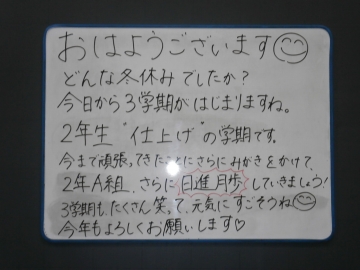 おはようございます
どんな冬休みでしたか？
今日から3学期がはじまりますね。
2年生 "仕上げ" の学期です。
今まで頑張ってきたことにさらにみがきをかけて、
2年A組、さらに日進月歩していきましょう!
3学期も、たくさん笑って、元気にすごそうね
今年もよろしくお願いします♡